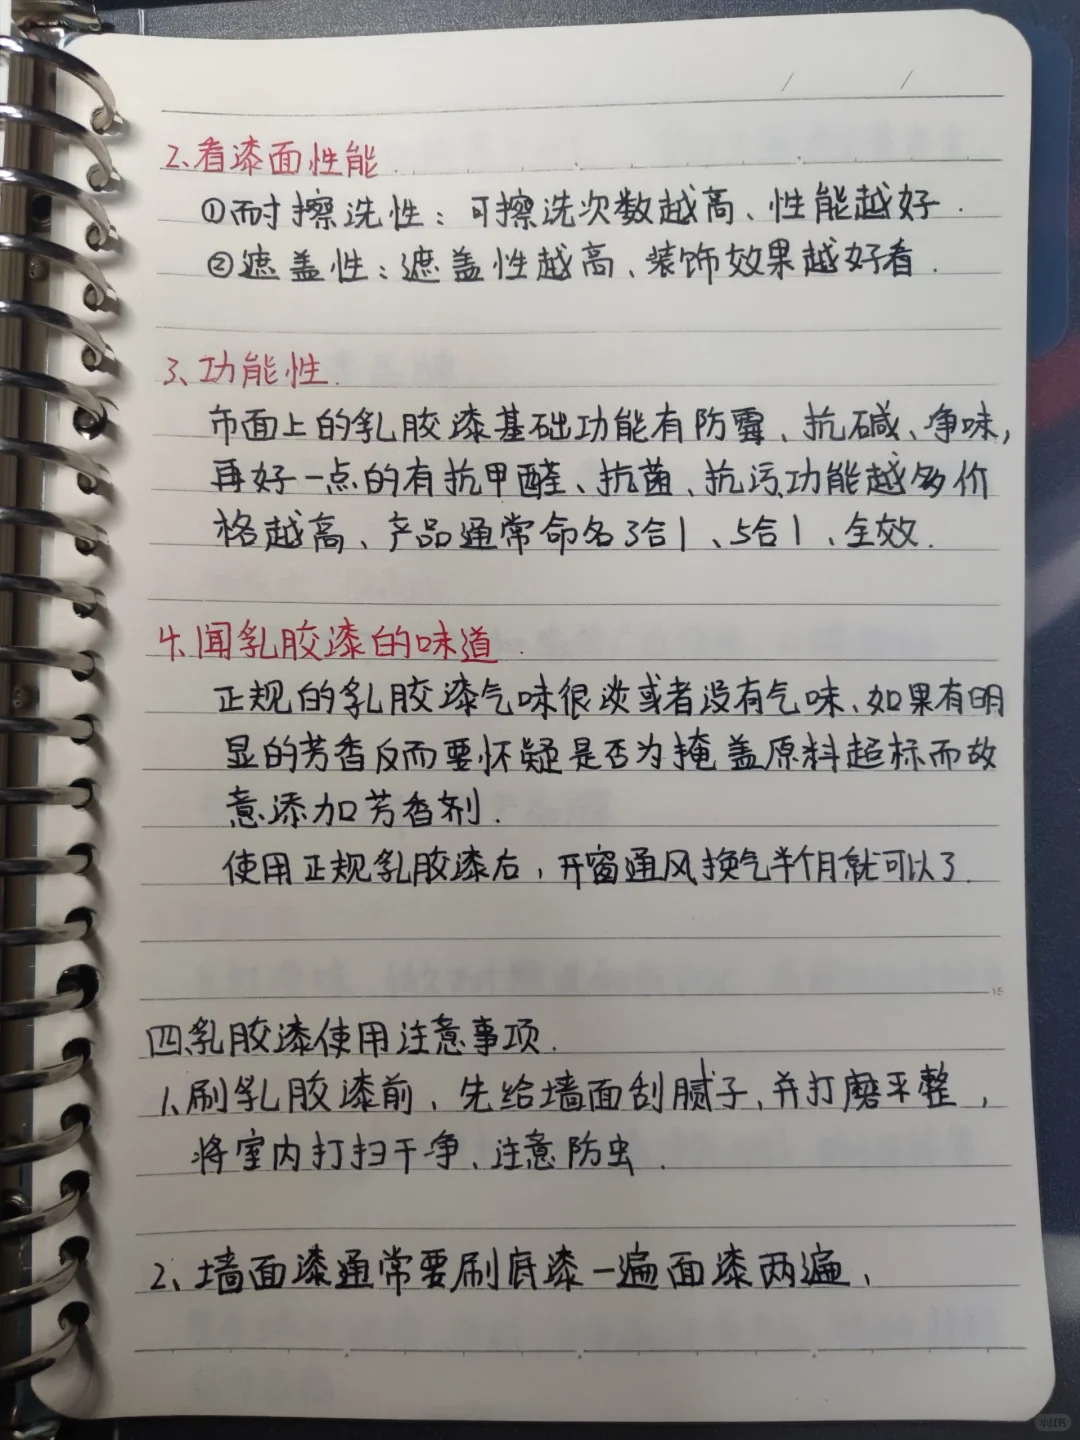 2、看漆面性能.
①耐擦洗性：可擦洗次数越高、性能越好.
②遮盖性：遮盖性越高、装饰效果越好看.
3、功能性.
市面上的乳胶漆基础功能有防霉、抗碱、净味,
再好一点的有抗甲醛、抗菌、抗污,功能越多价
格越高、产品通常命名3合1、5合1、全效.
4、闻乳胶漆的味道.
正规的乳胶漆气味很淡或者没有气味、如果有明
显的芳香反而要怀疑是否为掩盖原料超标而故
意添加芳香剂.
使用正规乳胶漆后,开窗通风换气半个月就可以了.
15
四、乳胶漆使用注意事项.
1、刷乳胶漆前、先给墙面刮腻子、并打磨平整,
将室内打扫干净、注意防虫.
2、墙面漆通常要刷底漆一遍面漆两遍、
小红书